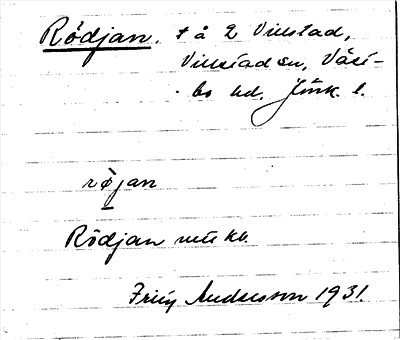 Rödjan. t å 2 Villstad,
Villstad sn, Väst-
bo hd. Jönk. l.
røjan
Rödjan enl kb.
Friry Andersson 1931.